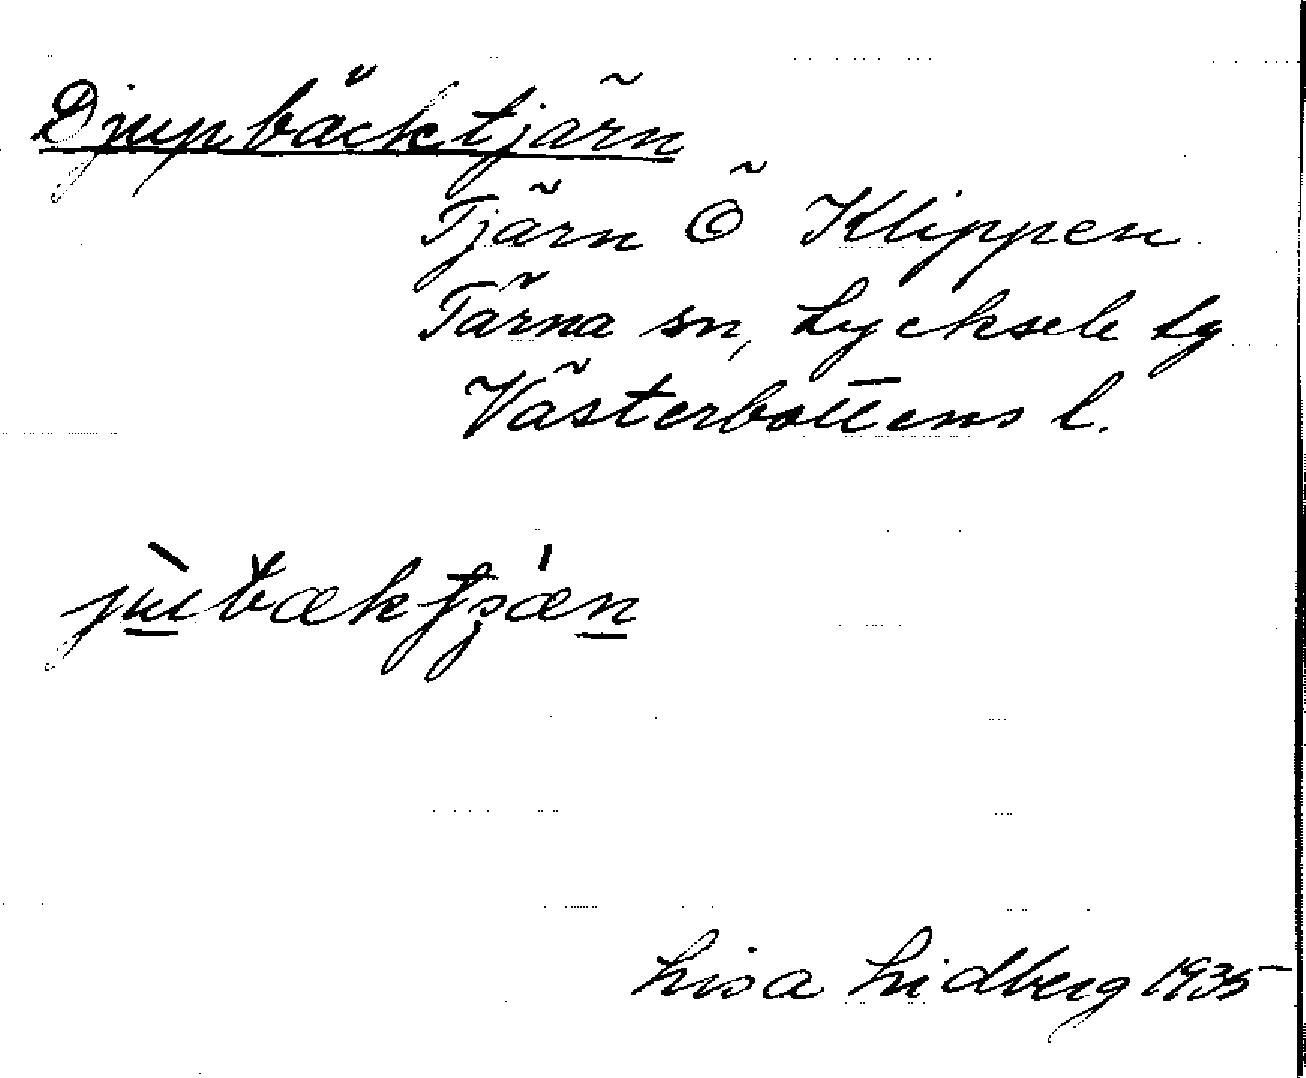 Djupbäcktjärn
Tjärn Ö Klippen
Tärna sn, Lycksele lg
Västerbottens l.
Lisa Lidberg 1935